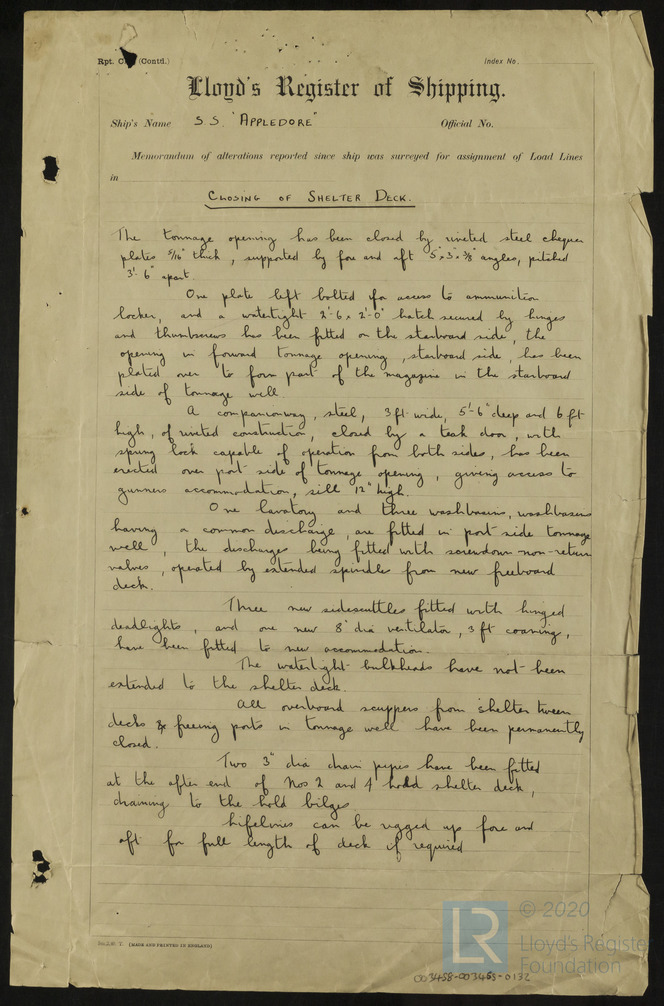 Rpt. C. (Contd.)
Index No.
Lloyd's Register of Shipping.
Ship's Name S.S. "APPLEDORE"
Official No.
Memorandum of alterations reported since ship was surveyed for assignment of Load Lines
in
CLOSING OF SHELTER DECK.
The tonnage opening has been closed by riveted steel chequer
plates 5/16" thick, supported by fore and aft 5"x3"x3/8" angles, pitched
3'-6" apart.
One plate left bolted for access to ammunition
locker, and a watertight 2'-6 x 2'-0" hatch secured by hinges
and thumbscrews has been fitted on the starboard side, the
opening in forward tonnage opening, starboard side, has been
plated over to form part of the magazine in the starboard
side of tonnage well.
A companionway, steel, 3ft wide, 5'-6" deep and 6 ft
high, of riveted construction, closed by a teak door, with
spring lock capable of operation from both sides, has been
erected over port side of tonnage opening, giving access to
gunners accommodation, sill 12" high.
One lavatory and three washbasins, washbasins
having a common discharge, are fitted in port side tonnage
well, the discharges being fitted with screwdown non-return
valves, operated by extended spindles from new freeboard
deck.
Three new sidescuttles fitted with hinged
deadlights, and one new 8" dia ventilator, 3 ft coaming,
have been fitted to new accommodation.
The watertight bulkheads have not been
extended to the shelter deck.
All overboard scuppers from shelter tween
decks & freeing ports in tonnage well have been permanently
closed.
Two 3" dia drain pipes have been fitted
at the after end of Nos 2 and 4 hold shelter deck,
draining to the hold bilges.
Lifelines can be rigged up fore and
aft for full length of deck if required
(MADE AND PRINTED IN ENGLAND)
LR
© 2020
Lloyd's Register
Foundation
003458-003463-0132